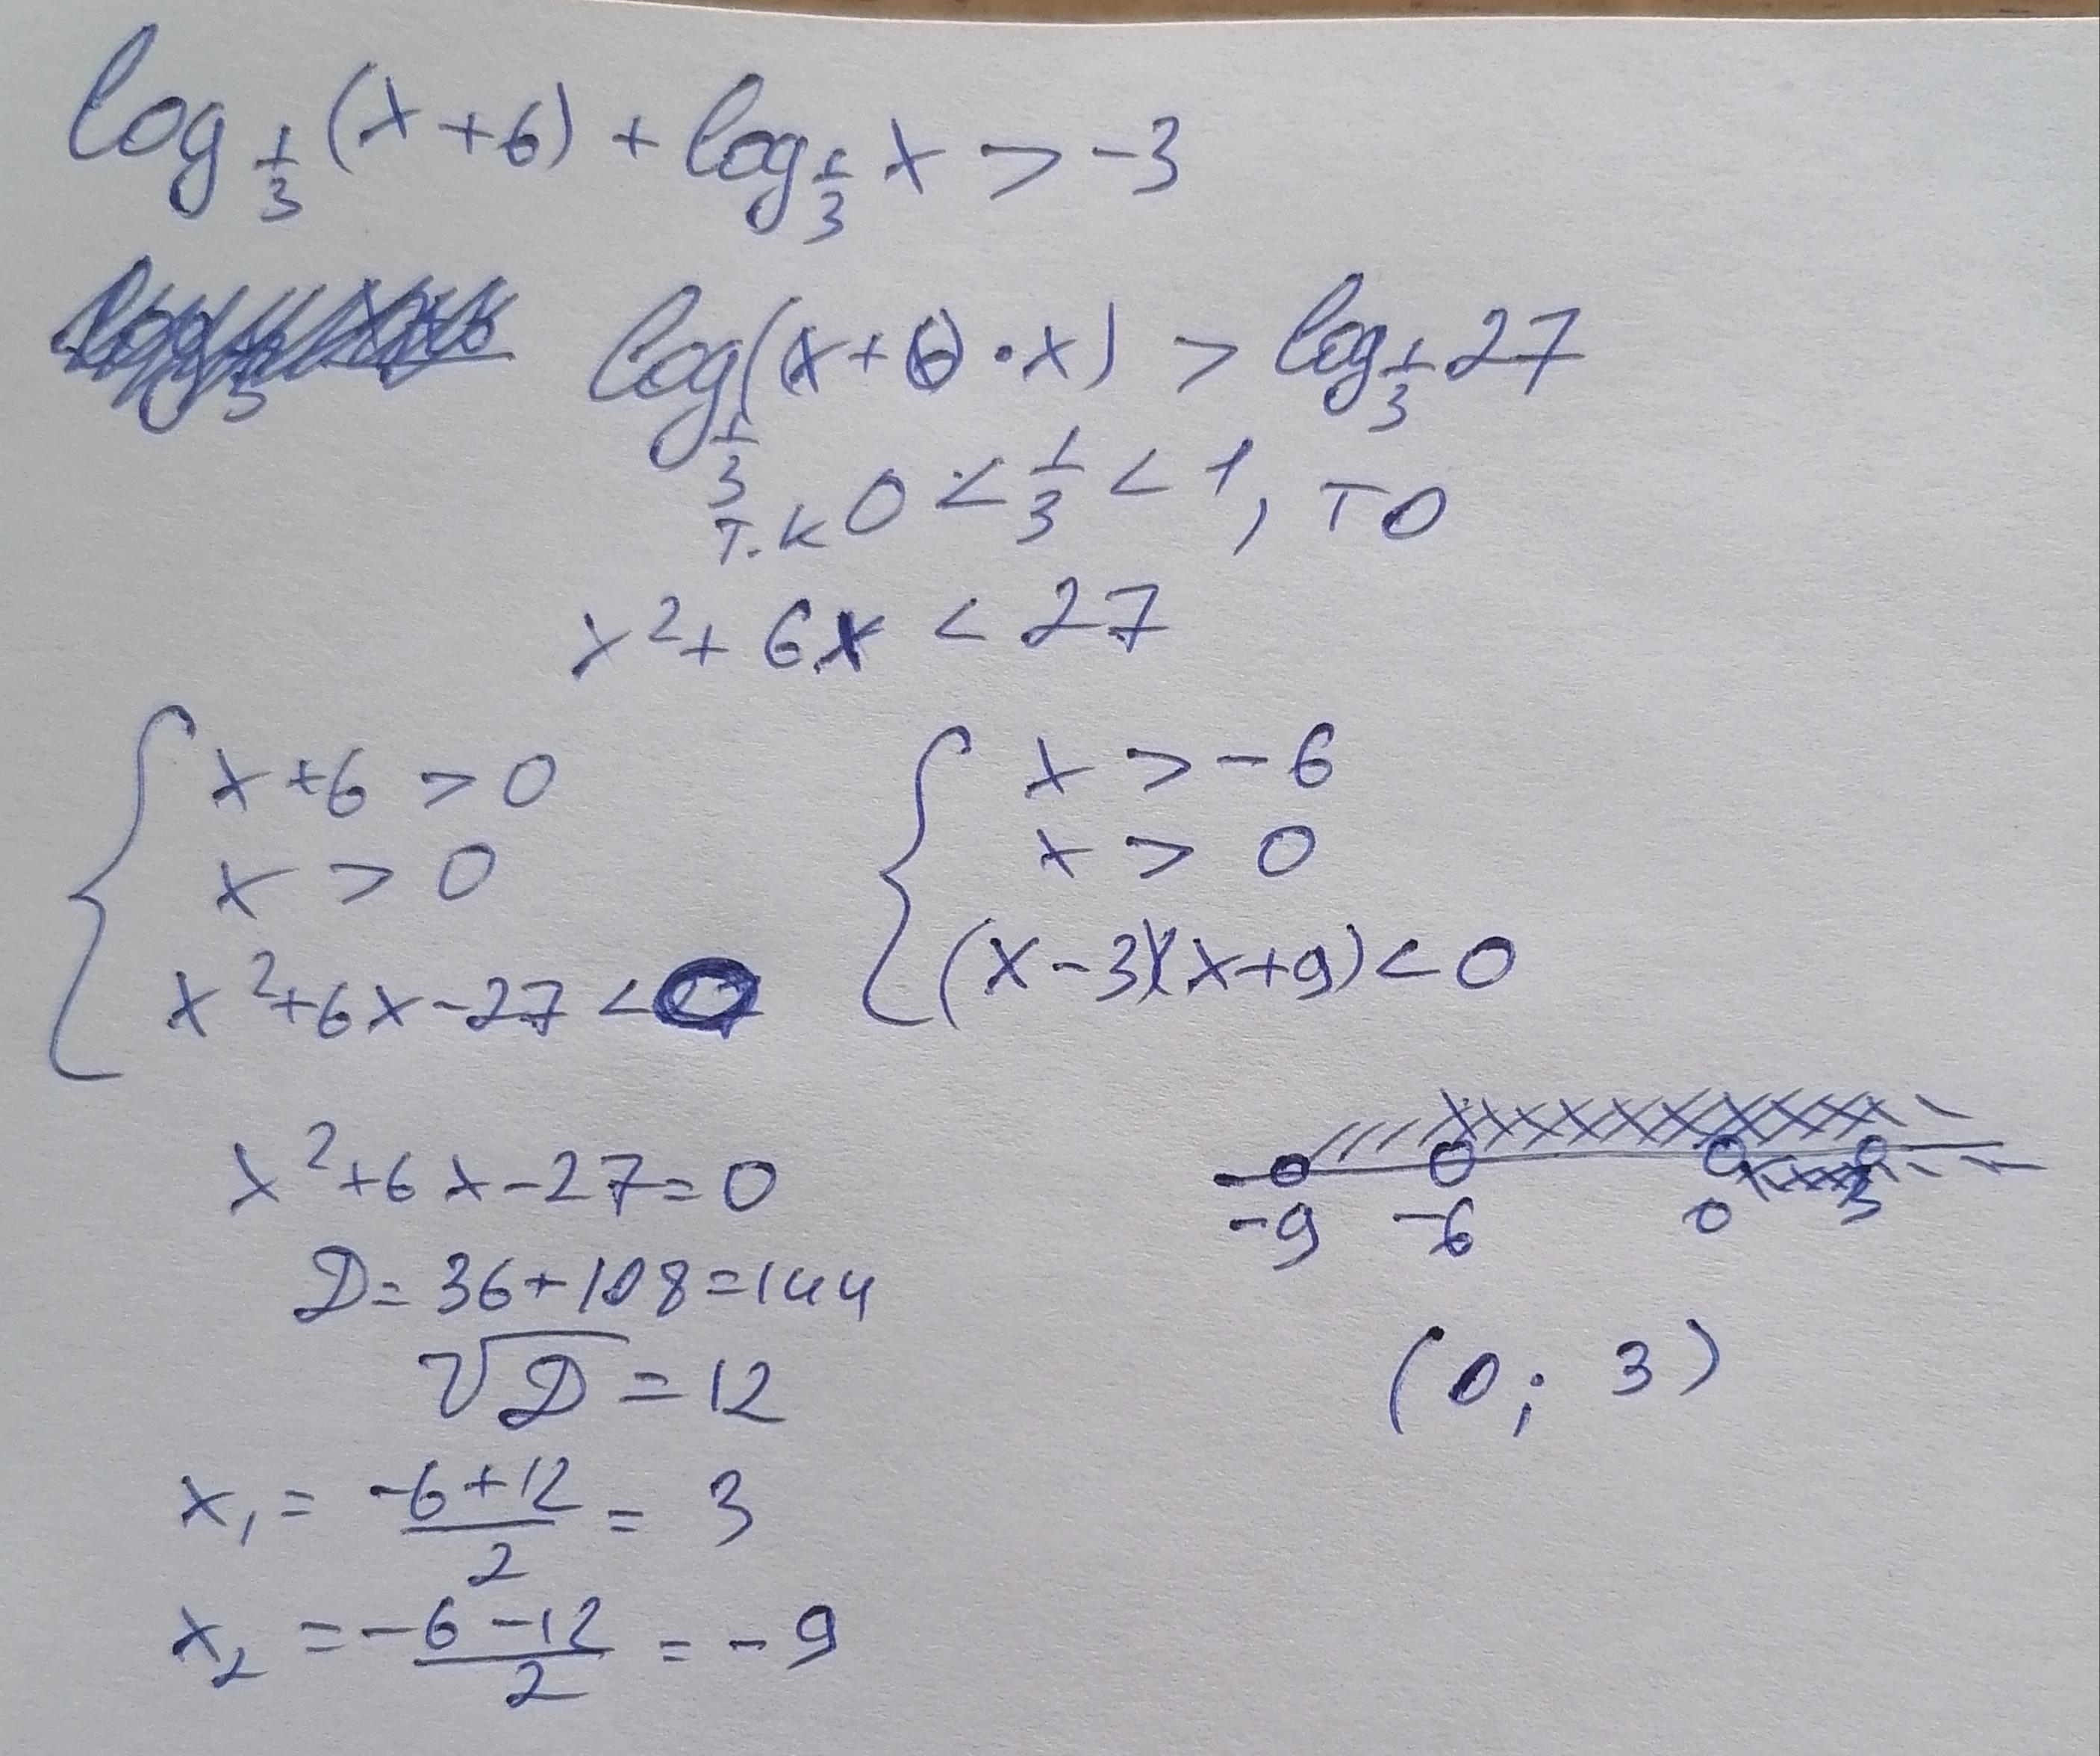 log 1/3 (x+6) + log 1/3 x > -3
log 1/3 ((x+6)·x) > log 1/3 27
т.к 0 < 1/3 < 1, то
x² + 6x < 27
{ x+6 > 0
x > 0
x²+6x-27 < 0
{ x > -6
x > 0
(x-3)(x+9) < 0
x²+6x-27=0
D = 36+108=144
√D = 12
x₁ = (-6+12)/2 = 3
x₂ = (-6-12)/2 = -9
-9 -6 0 3
(0; 3)